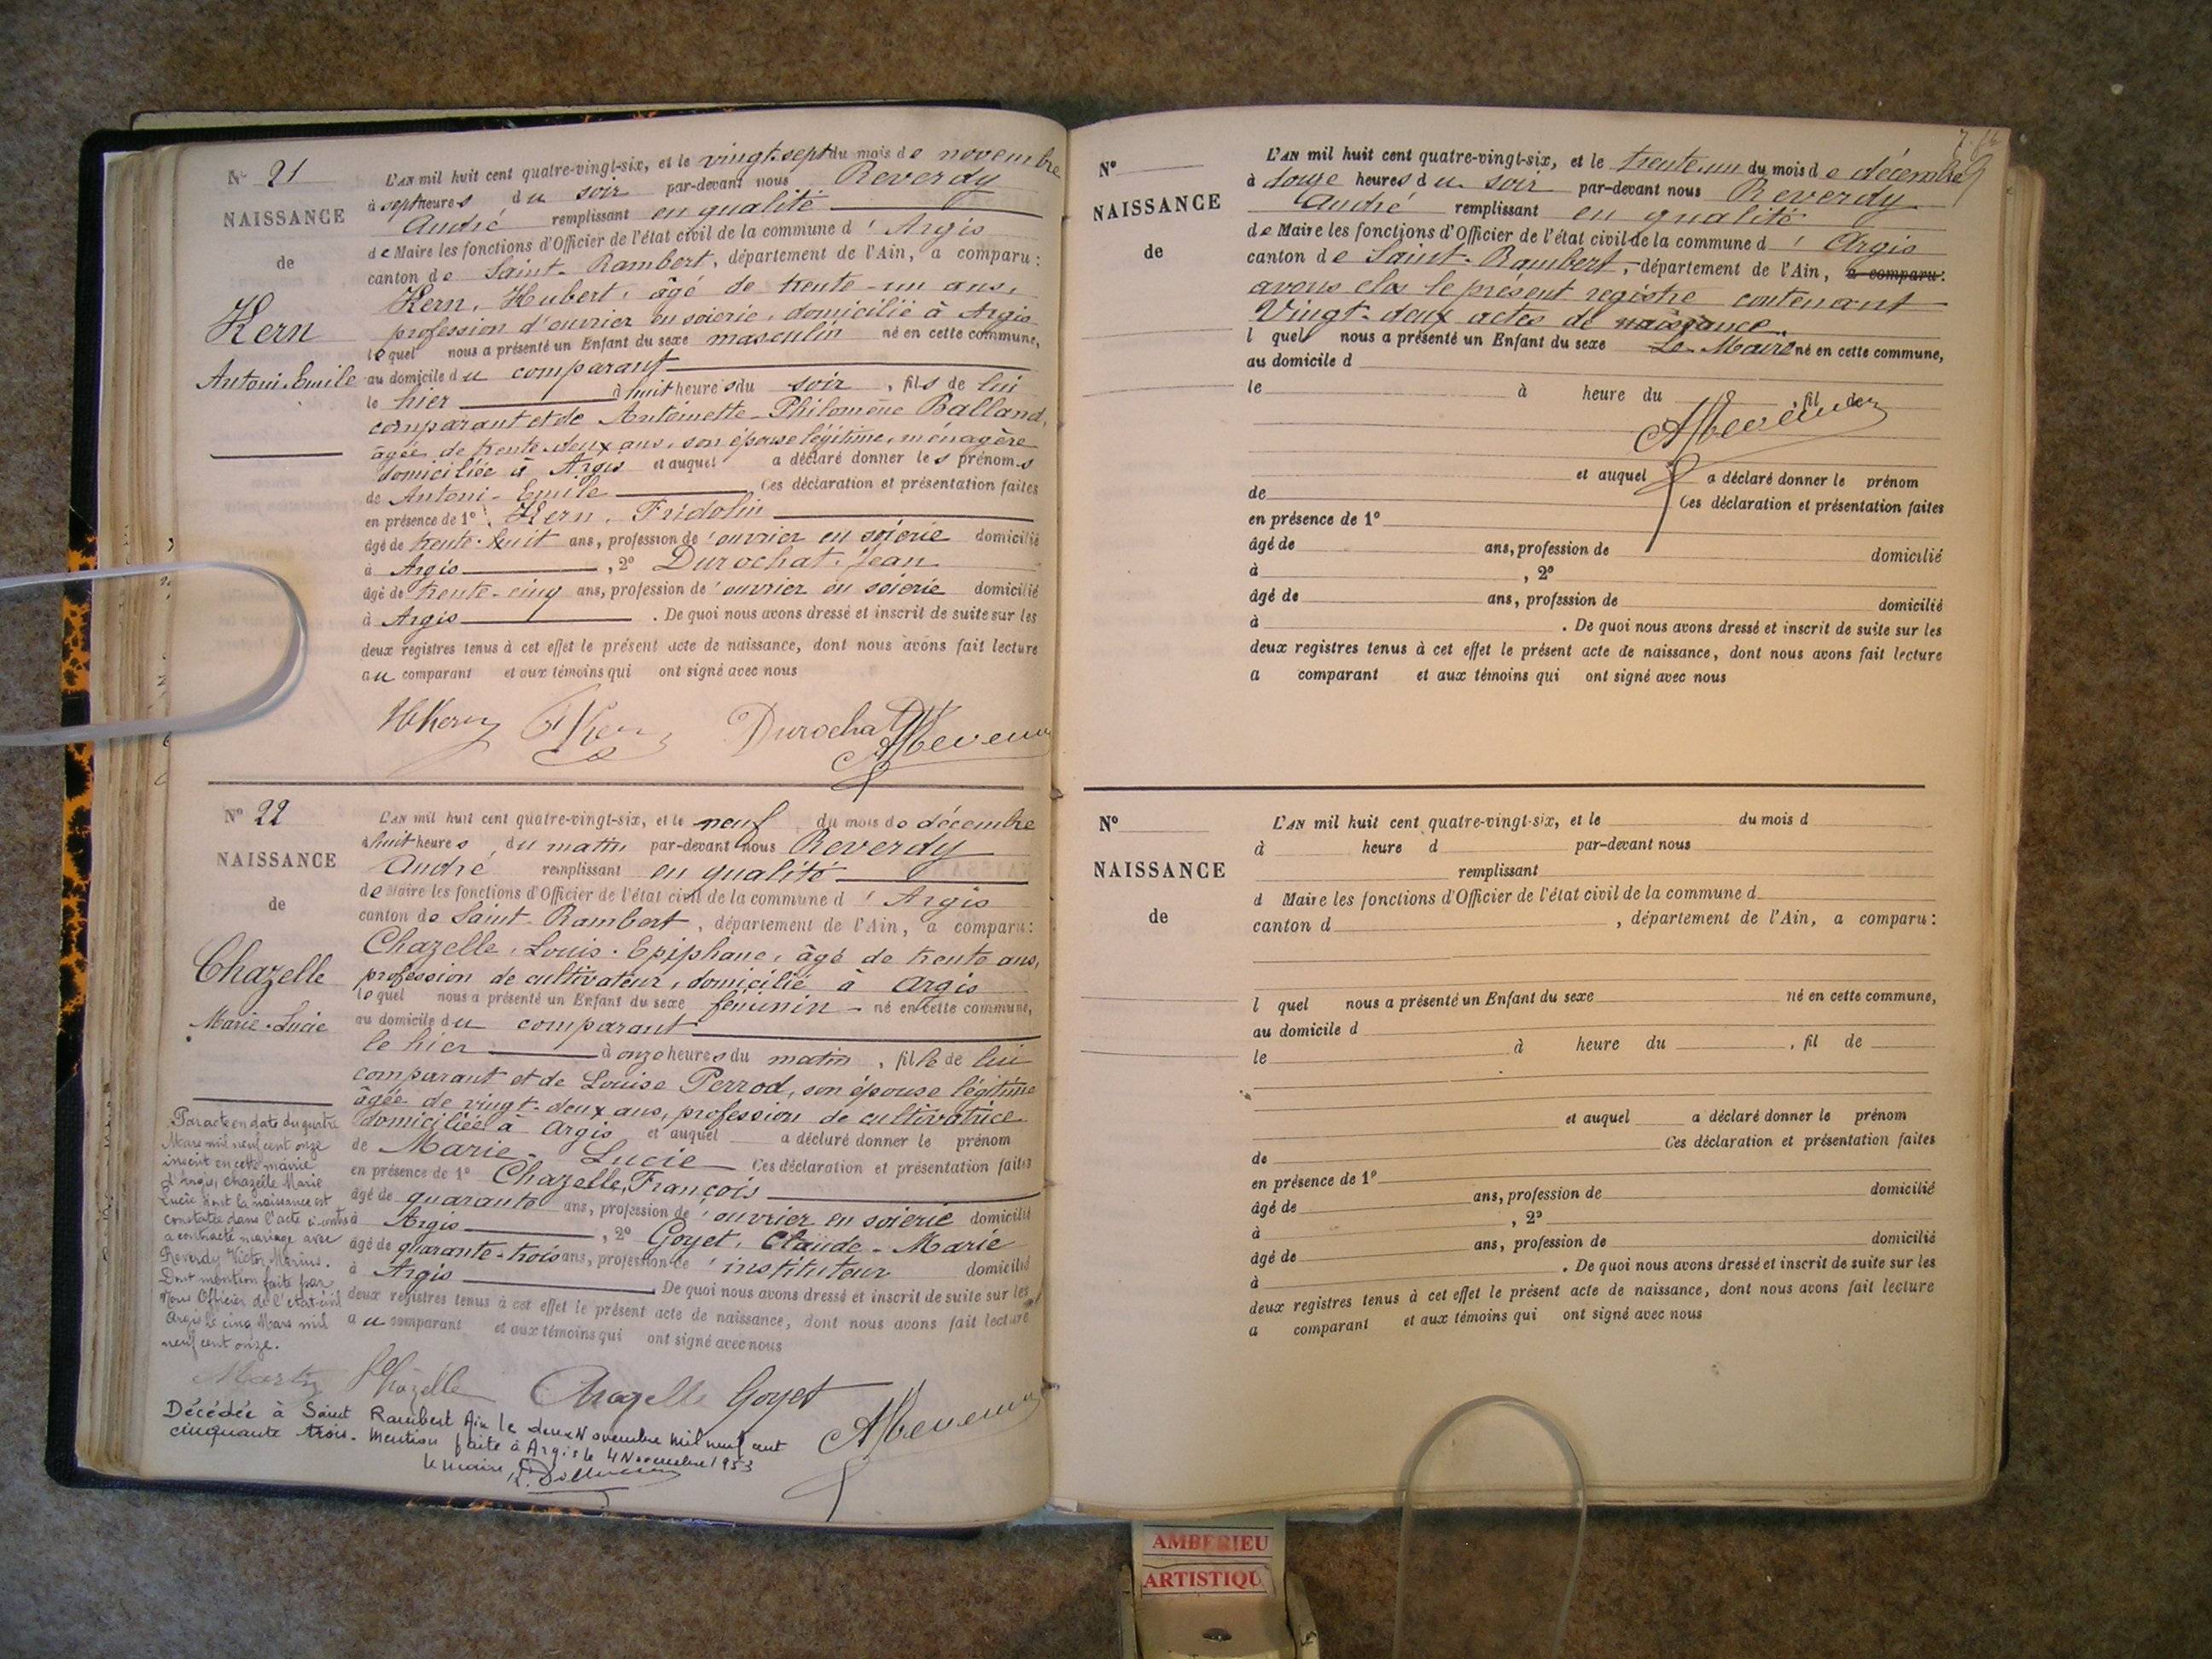 N° 21
NAISSANCE
de
Kern
Antoni Emile
L'AN mil huit cent quatre-vingt-six, et le vingt-sept du mois de novembre
à sept heures du soir par-devant nous Reverdy
André remplissant en qualité
de Maire les fonctions d'Officier de l'état civil de la commune d' Argis
canton de Saint-Rambert, département de l'Ain, a comparu:
Kern, Hubert, âgé de trente-un ans,
profession d'ouvrier en soierie, domicilié à Argis
lequel nous a présenté un Enfant du sexe masculin né en cette commune,
au domicile du comparant
le hier à huit heures du soir, fils de lui
comparant et de Antoinette-Philomène Balland,
âgée de trente-deux ans, son épouse légitime, ménagère
domiciliée à Argis et auquel a déclaré donner les prénoms
de Antoni-Emile Ces déclaration et présentation faites
en présence de 1° Kern, Fridolin
âgé de trente-huit ans, profession d'ouvrier en soierie domicilié
à Argis, 2° Durochat, Jean
âgé de trente-cinq ans, profession de 'ouvrier en soierie domicilié
à Argis. De quoi nous avons dressé et inscrit de suite sur les
deux registres tenus à cet effet le présent acte de naissance, dont nous avons fait lecture
au comparant et aux témoins qui ont signé avec nous
HKern Kern Durochat
N° 22
NAISSANCE
de
Chazelle
Marie-Lucie
L'AN mil huit cent quatre-vingt-six, et le neuf du mois de décembre
à huit heures du matin par-devant nous Reverdy
André remplissant en qualité
de Maire les fonctions d'Officier de l'état civil de la commune d' Argis
canton de Saint-Rambert, département de l'Ain, a comparu:
Chazelle, Louis-Epiphane, âgé de trente ans,
profession de cultivateur, domicilié à Argis
lequel nous a présenté un Enfant du sexe féminin - né en cette commune,
au domicile du comparant
le hier à onze heures du matin, fille de lui
comparant et de Louise Perrod, son épouse légitime
âgée de vingt-deux ans, profession de cultivatrice
domiciliée à Argis et auquel a déclaré donner le prénom
de Marie-Lucie Ces déclaration et présentation faites
en présence de 1° Chazelle, François
âgé de quarante ans, profession de 'ouvrier en soierie domicilié
à Argis, 2° Goyet, Claude-Marie
âgé de quarante-trois ans, profession de 'instituteur domicilié
à Argis. De quoi nous avons dressé et inscrit de suite sur les
deux registres tenus à cet effet le présent acte de naissance, dont nous avons fait lecture
au comparant et aux témoins qui ont signé avec nous
Par acte en date du quatre
Mars mil neuf cent onze
inscrit en cette mairie
d'Argis, Chazelle Marie
Lucie dont la naissance est
constatée dans l'acte ci-contre
a contracté mariage avec
Reverdy Victor Marius.
Dont mention faite par
Nous Officier de l'état-civil
Argis le cinq Mars mil
neuf cent onze.
Chazelle Chazelle Goyet
Décédée à Saint Rambert Ain le deux Novembre mil neuf cent
cinquante trois. Mention faite à Argis le 4 Novembre 1953
le maire,
N°
NAISSANCE
de
L'AN mil huit cent quatre-vingt-six, et le trente-un du mois de décembre
à douze heures du soir par-devant nous Reverdy
André remplissant en qualité
de Maire les fonctions d'Officier de l'état civil de la commune d' Argis
canton de Saint-Rambert, département de l'Ain, a comparu:
avons clos le présent registre contenant
Vingt-deux actes de naissance.
l quel nous a présenté un Enfant du sexe Le Maire né en cette commune,
au domicile d
le à heure du , fil de
et auquel a déclaré donner le prénom
de Ces déclaration et présentation faites
en présence de 1°
âgé de ans, profession de domicilié
à , 2°
âgé de ans, profession de domicilié
à . De quoi nous avons dressé et inscrit de suite sur les
deux registres tenus à cet effet le présent acte de naissance, dont nous avons fait lecture
a comparant et aux témoins qui ont signé avec nous
N°
NAISSANCE
de
L'AN mil huit cent quatre-vingt-six, et le du mois d
à heure d par-devant nous
remplissant
d Maire les fonctions d'Officier de l'état civil de la commune d
canton d , département de l'Ain, a comparu:
l quel nous a présenté un Enfant du sexe né en cette commune,
au domicile d
le à heure du , fil de
et auquel a déclaré donner le prénom
de Ces déclaration et présentation faites
en présence de 1°
âgé de ans, profession de domicilié
à , 2°
âgé de ans, profession de domicilié
à . De quoi nous avons dressé et inscrit de suite sur les
deux registres tenus à cet effet le présent acte de naissance, dont nous avons fait lecture
a comparant et aux témoins qui ont signé avec nous
AMBERIEU
ARTISTIQU